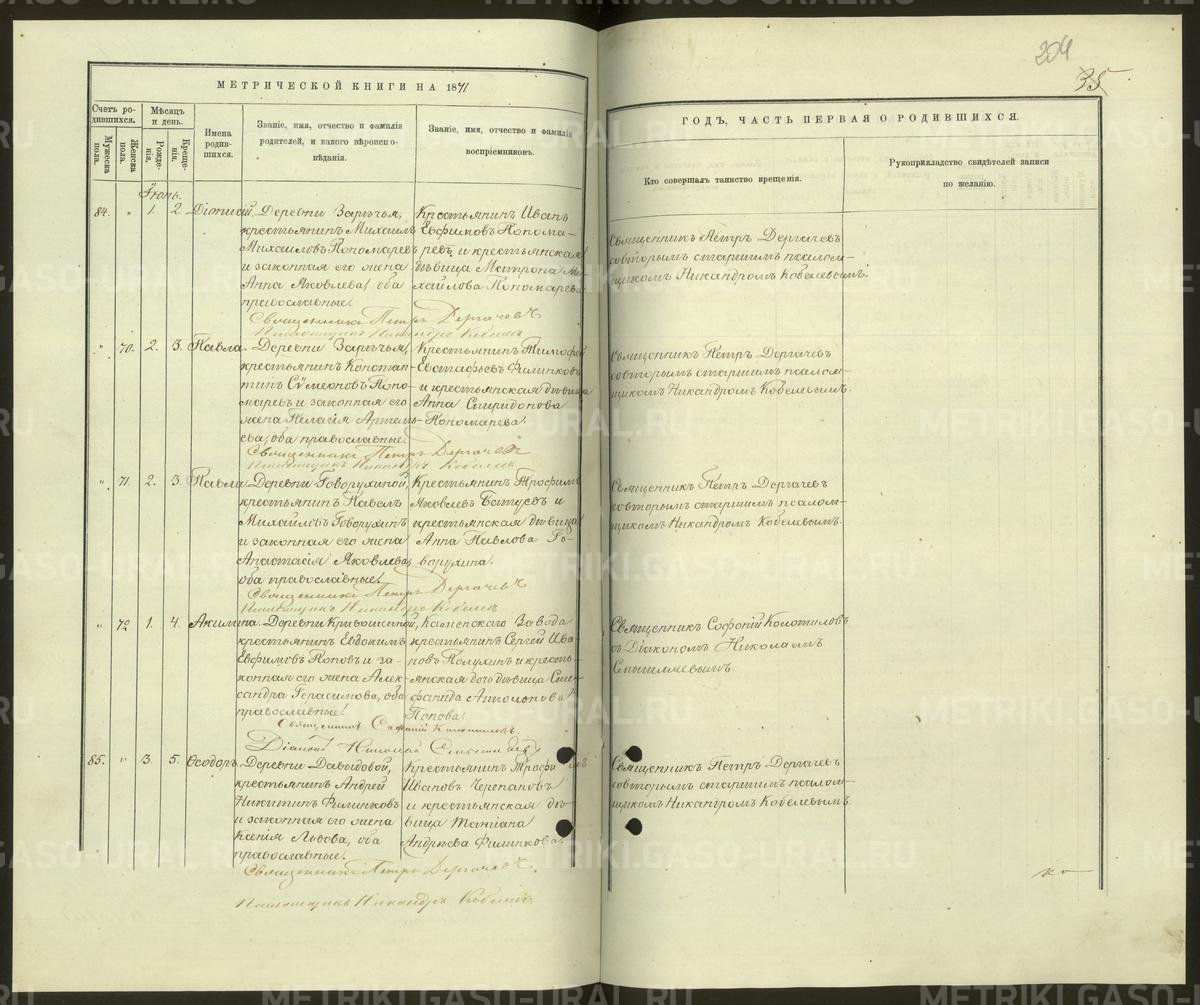 204
35
МЕТРИЧЕСКОЙ КНИГИ НА 1871
ГОДЪ, ЧАСТЬ ПЕРВАЯ О РОДИВШИХСЯ.
Счетъ родившихся.
Мужеска пола.
Женска пола.
Мѣсяцъ и день.
Рожденія.
Крещенія.
Имена родившихся.
Званіе, имя, отчество и фамилія родителей, и какого вѣроисповѣданія.
Званіе, имя, отчество и фамилія воспріемниковъ.
Кто совершалъ таинство крещенія.
Рукоприкладство свидѣтелей записи по желанію.
Іюнь.
84. " 1. 2. Діонисій.
Деревни Зарѣчья,
крестьянинъ Михаилъ
Михаиловъ Пономаревъ
и законная его жена
Анна Яковлева, оба
православные.
Крестьянинъ Иванъ
Евфимовъ Понома-
ревъ и крестьянская
дѣвица Матрона Ми-
хайлова Пономарева.
Священникъ Петръ Дергачевъ
совторымъ старшимъ псалом-
щикомъ Никандромъ Кобелевымъ.
Священникъ Петръ Дергачевъ
Псаломщикъ Никандръ Кобелевъ
" 70. 2. 3. Павла.
Деревни Зарѣчья,
крестьянинъ Констан-
тинъ Сѵмеоновъ Поно-
маревъ и законная его
жена Пелагія Артемь-
ева, оба православные.
Крестьянинъ Тимофей
Евстафьевъ Филинковъ
и крестьянская дѣвица
Анна Спиридонова
Пономарева.
Священникъ Петръ Дергачевъ
совторымъ старшимъ псалом-
щикомъ Никандромъ Кобелевымъ.
Священникъ Петръ Дергачевъ
Псаломщикъ Никандръ Кобелевъ
" 71. 2. 3. Павла.
Деревни Говорухиной,
крестьянинъ Павелъ
Михайловъ Говорухинъ
и законная его жена
Анастасія Яковлева,
оба православные.
Крестьянинъ Трофимъ
Яковлевъ Батуевъ и
крестьянская дѣвица
Анна Павлова Го-
ворухина.
Священникъ Петръ Дергачевъ
совторымъ старшимъ псалом-
щикомъ Никандромъ Кобелевымъ.
Священникъ Петръ Дергачевъ
Псаломщикъ Никандръ Кобелевъ
" 72 1. 4. Акилина.
Деревни Кривошиной,
крестьянинъ Евдокимъ
Евфимовъ Поповъ и за-
конная его жена Алек-
сандра Герасимова, оба
православные.
Каменскаго Завода
крестьянинъ Сергей Ива-
новъ Полухинъ и кресть-
янская дочь дѣвица Сте-
фанида
Попова.
Священникъ Софоній
съ Діакономъ Николаемъ
Смышляевымъ.
Священникъ Софоній
Діаконъ Николай
85. " 3. 5. Ѳеодоръ.
Деревни Давыдовой,
крестьянинъ Андрей
Никитинъ Филинковъ
и законная его жена
Ксенія Львова, оба
православные.
Крестьянинъ Трофимъ
Ивановъ Черепановъ
и крестьянская дѣ-
вица Татіана
Андреева Филинкова.
Священникъ Петръ Дергачевъ
совторымъ старшимъ псалом-
щикомъ Никандромъ Кобелевымъ.
Священникъ Петръ Дергачевъ.
Псаломщикъ Никандръ Кобелевъ
METRIKI.GASO-URAL.RU